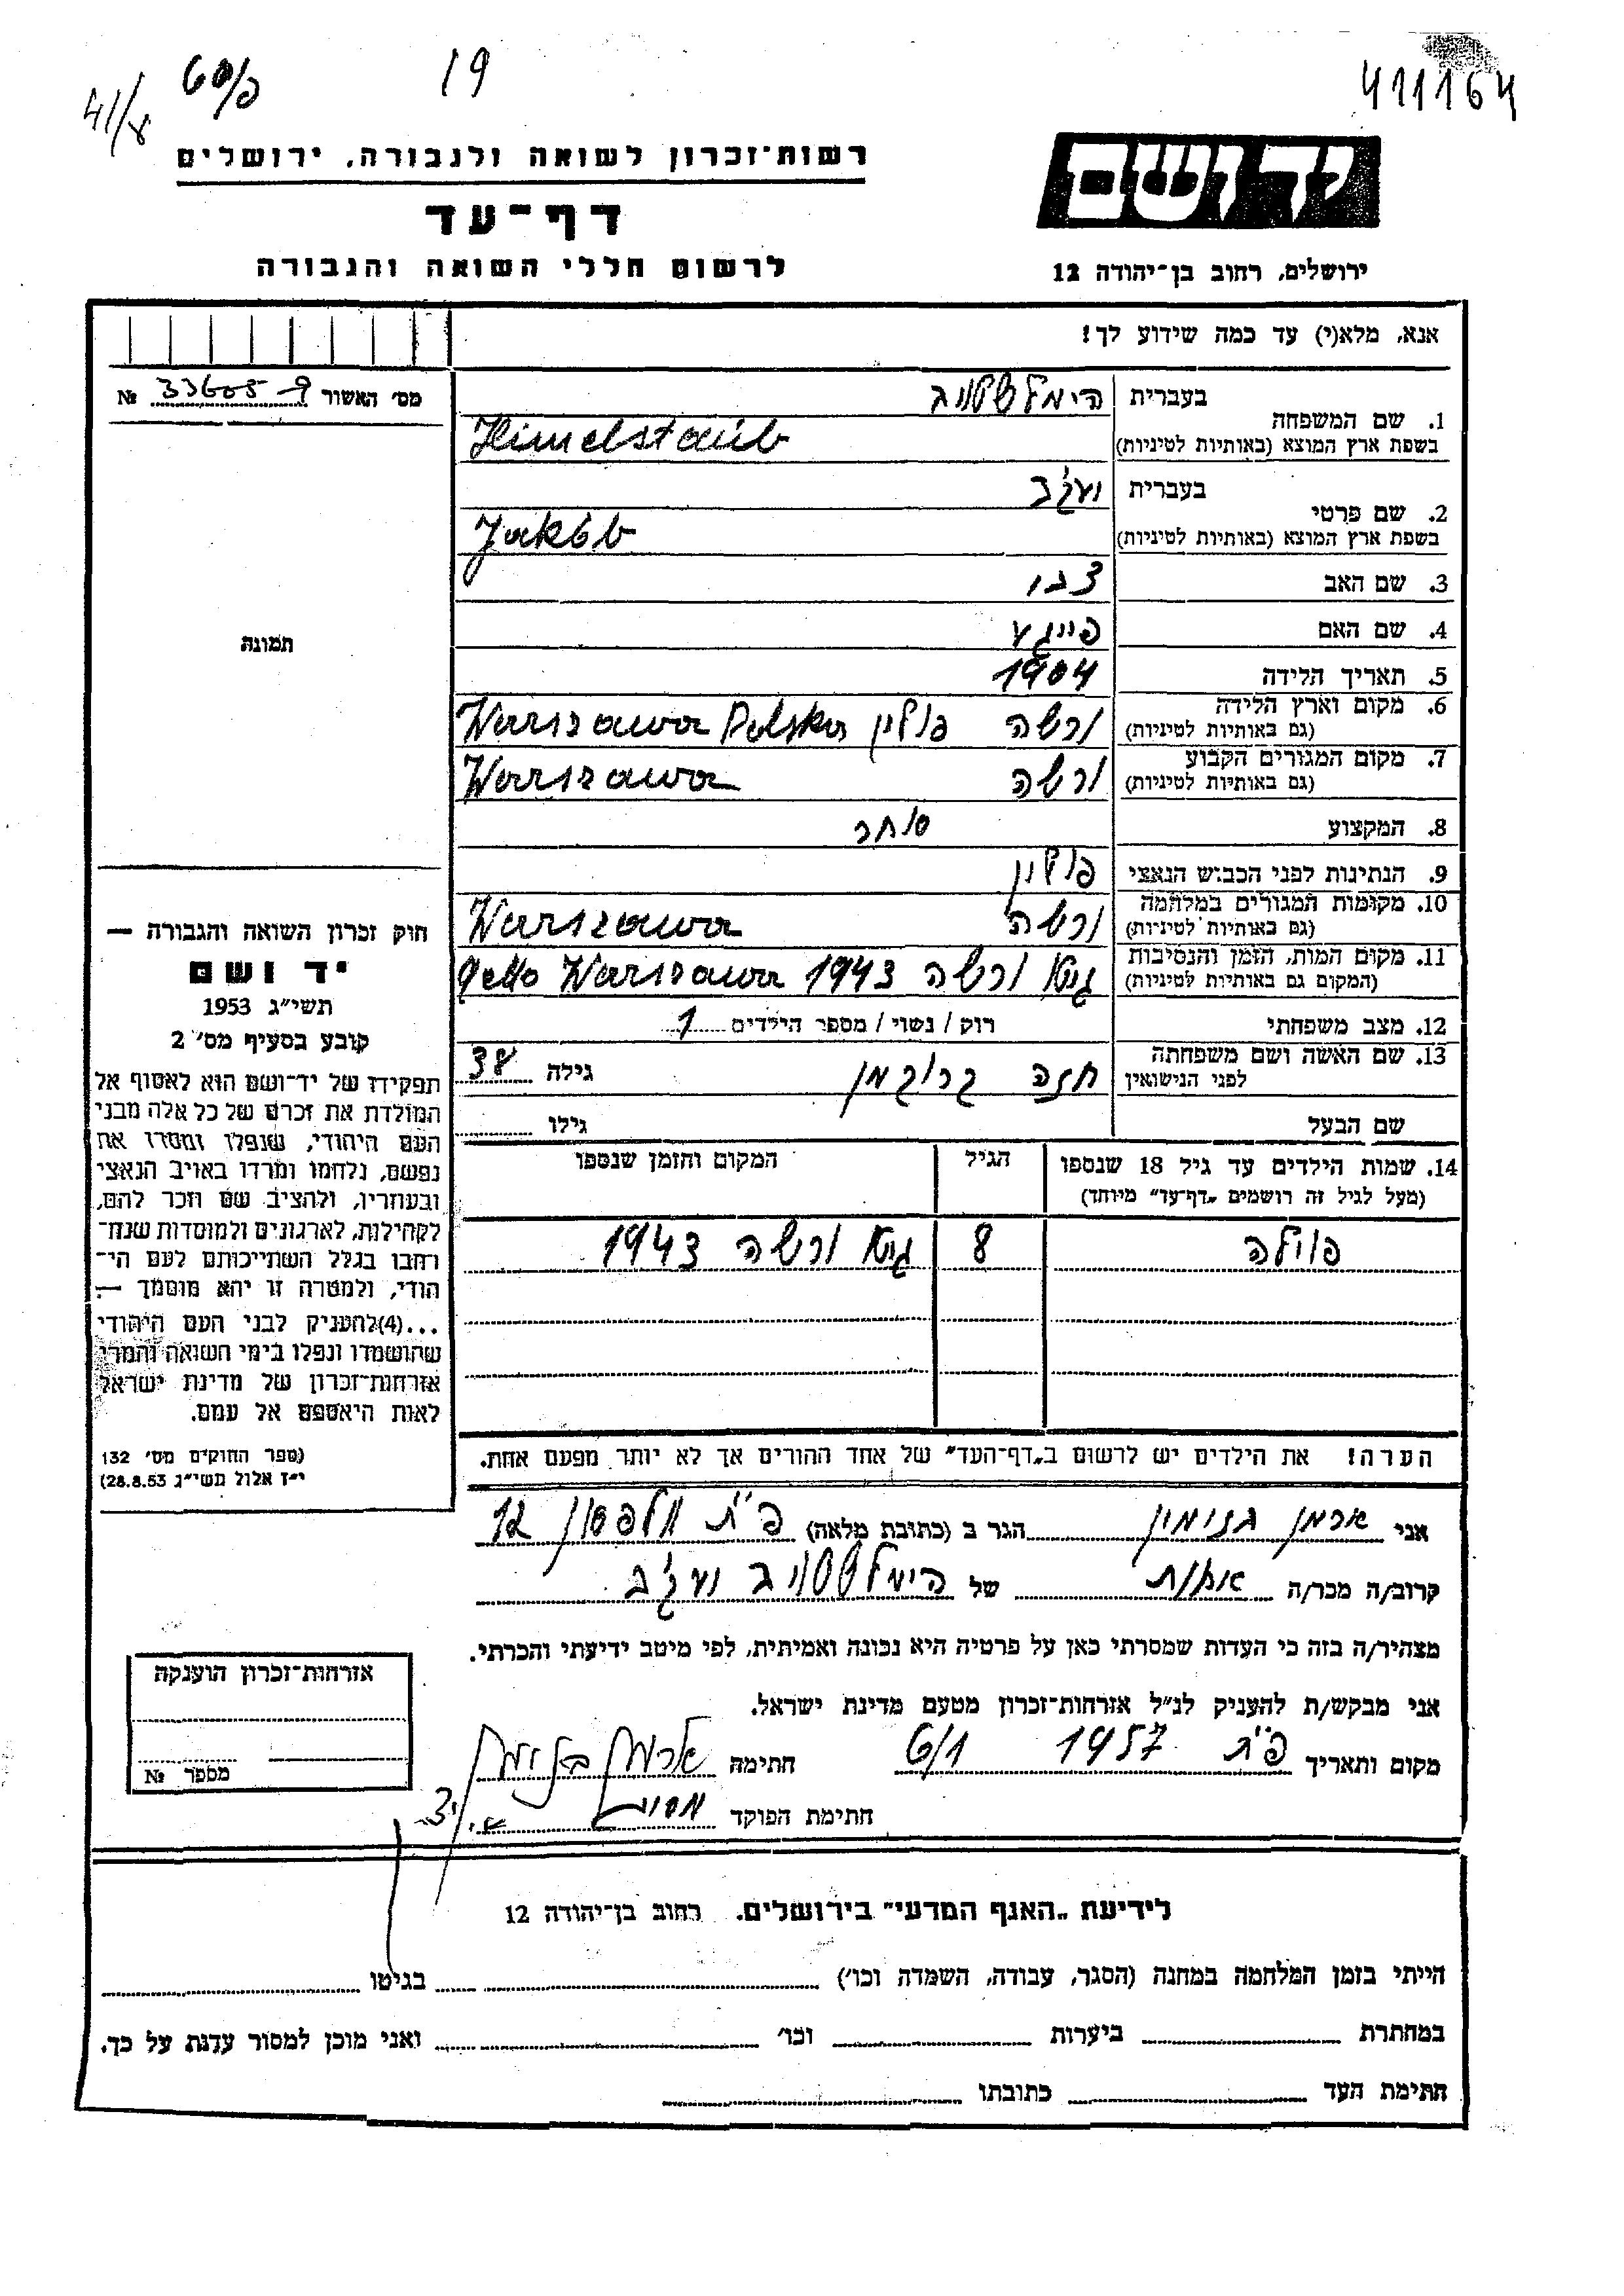 411164
19
60/פ
41/ע
יד ושם
רשות־זכרון לשואה ולגבורה, ירושלים
דף־עד
לרשום חללי השואה והגבורה
ירושלים, רחוב בן־יהודה 12
אנא, מלא(י) עד כמה שידוע לך!
מס׳ האשור 33605-9 №
תמונה
בעברית הימלשטויב
1. שם המשפחה
בשפת ארץ המוצא (באותיות לטיניות) Himelstaub
בעברית יעקב
2. שם פרטי
בשפת ארץ המוצא (באותיות לטיניות) Jakób
3. שם האב צבי
4. שם האם פייגע
5. תאריך הלידה 1904
6. מקום וארץ הלידה ורשה פולין Warszawa Polska
(גם באותיות לטיניות)
7. מקום המגורים הקבוע ורשה Warszawa
(גם באותיות לטיניות)
8. המקצוע סוחר
9. הנתינות לפני הכבוש הנאצי פולין
10. מקומות המגורים במלחמה ורשה Warszawa
(גם באותיות לטיניות)
11. מקום המות, הזמן והנסיבות גיטו ורשה 1943 Getto Warszawa
(המקום גם באותיות לטיניות)
12. מצב משפחתי רוק / נשוי / מספר הילדים 1
13. שם האשה ושם משפחתה חנה ברוקמן גילה 38
לפני הנישואין
שם הבעל גילו
14. שמות הילדים עד גיל 18 שנספו הגיל המקום והזמן שנספו
(מעל לגיל זה רושמים „דף־עד״ מיוחד)
פולה 8 גיטו ורשה 1943
הערה! את הילדים יש לרשום ב„דף־העד״ של אחד ההורים אך לא יותר מפעם אחת.
חוק זכרון השואה והגבורה —
יד ושם
תשי״ג 1953
קובע בסעיף מס׳ 2
תפקידו של יד־ושם הוא לאסוף אל
המולדת את זכרם של כל אלה מבני
העם היהודי, שנפלו ומסרו את
נפשם, נלחמו ומרדו באויב הנאצי
ובעוזריו, ולהציב שם וזכר להם,
לקהילות, לארגונים ולמוסדות שנח־
רחבו בגלל השתייכותם לעם הי־
הודי, ולמטרה זו יהא מוסמך —
...(4)להעניק לבני העם היהודי
שהושמדו ונפלו בימי השואה והמרי
אזרחות־זכרון של מדינת ישראל
לאות היאספם אל עמם.
(ספר החוקים מס׳ 132
י״ז אלול תשי״ג 28.8.53)
אני ארמן בנימין הגר ב (כתובת מלאה) פ״ת וולפסון 12
קרוב/ה מכר/ה של הימלשטויב יעקב
מצהיר/ה בזה כי העדות שמסרתי כאן על פרטיה היא נכונה ואמיתית, לפי מיטב ידיעתי והכרתי.
אני מבקש/ת להעניק לנ״ל אזרחות־זכרון מטעם מדינת ישראל.
מקום ותאריך פ״ת 1957 6/1 חתימה ארמן בנימין
חתימת הפוקד
אזרחות־זכרון הוענקה
מספר №
לידיעת „האגף המדעי״ בירושלים. רחוב בן־יהודה 12
הייתי בזמן המלחמה במחנה (הסגר, עבודה, השמדה וכו׳) בגיטו
במחתרת ביערות וכו׳ ואני מוכן למסור עדות על כך.
חתימת העד כתובתו